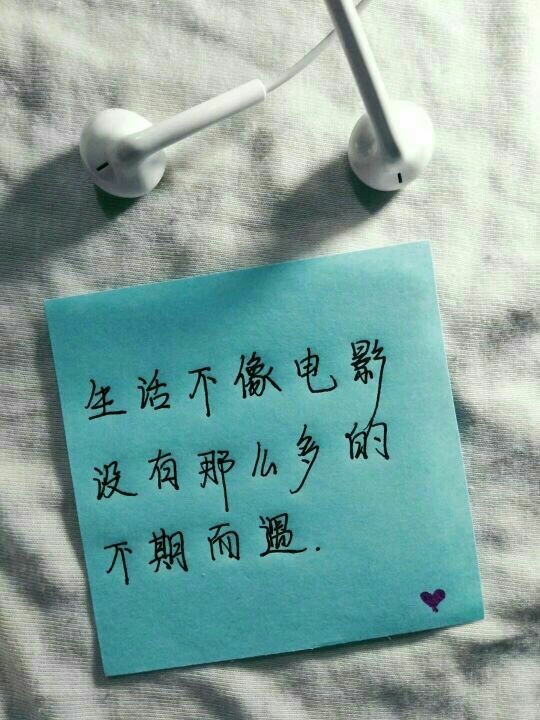 生活不像电影
没有那么多的
不期而遇.